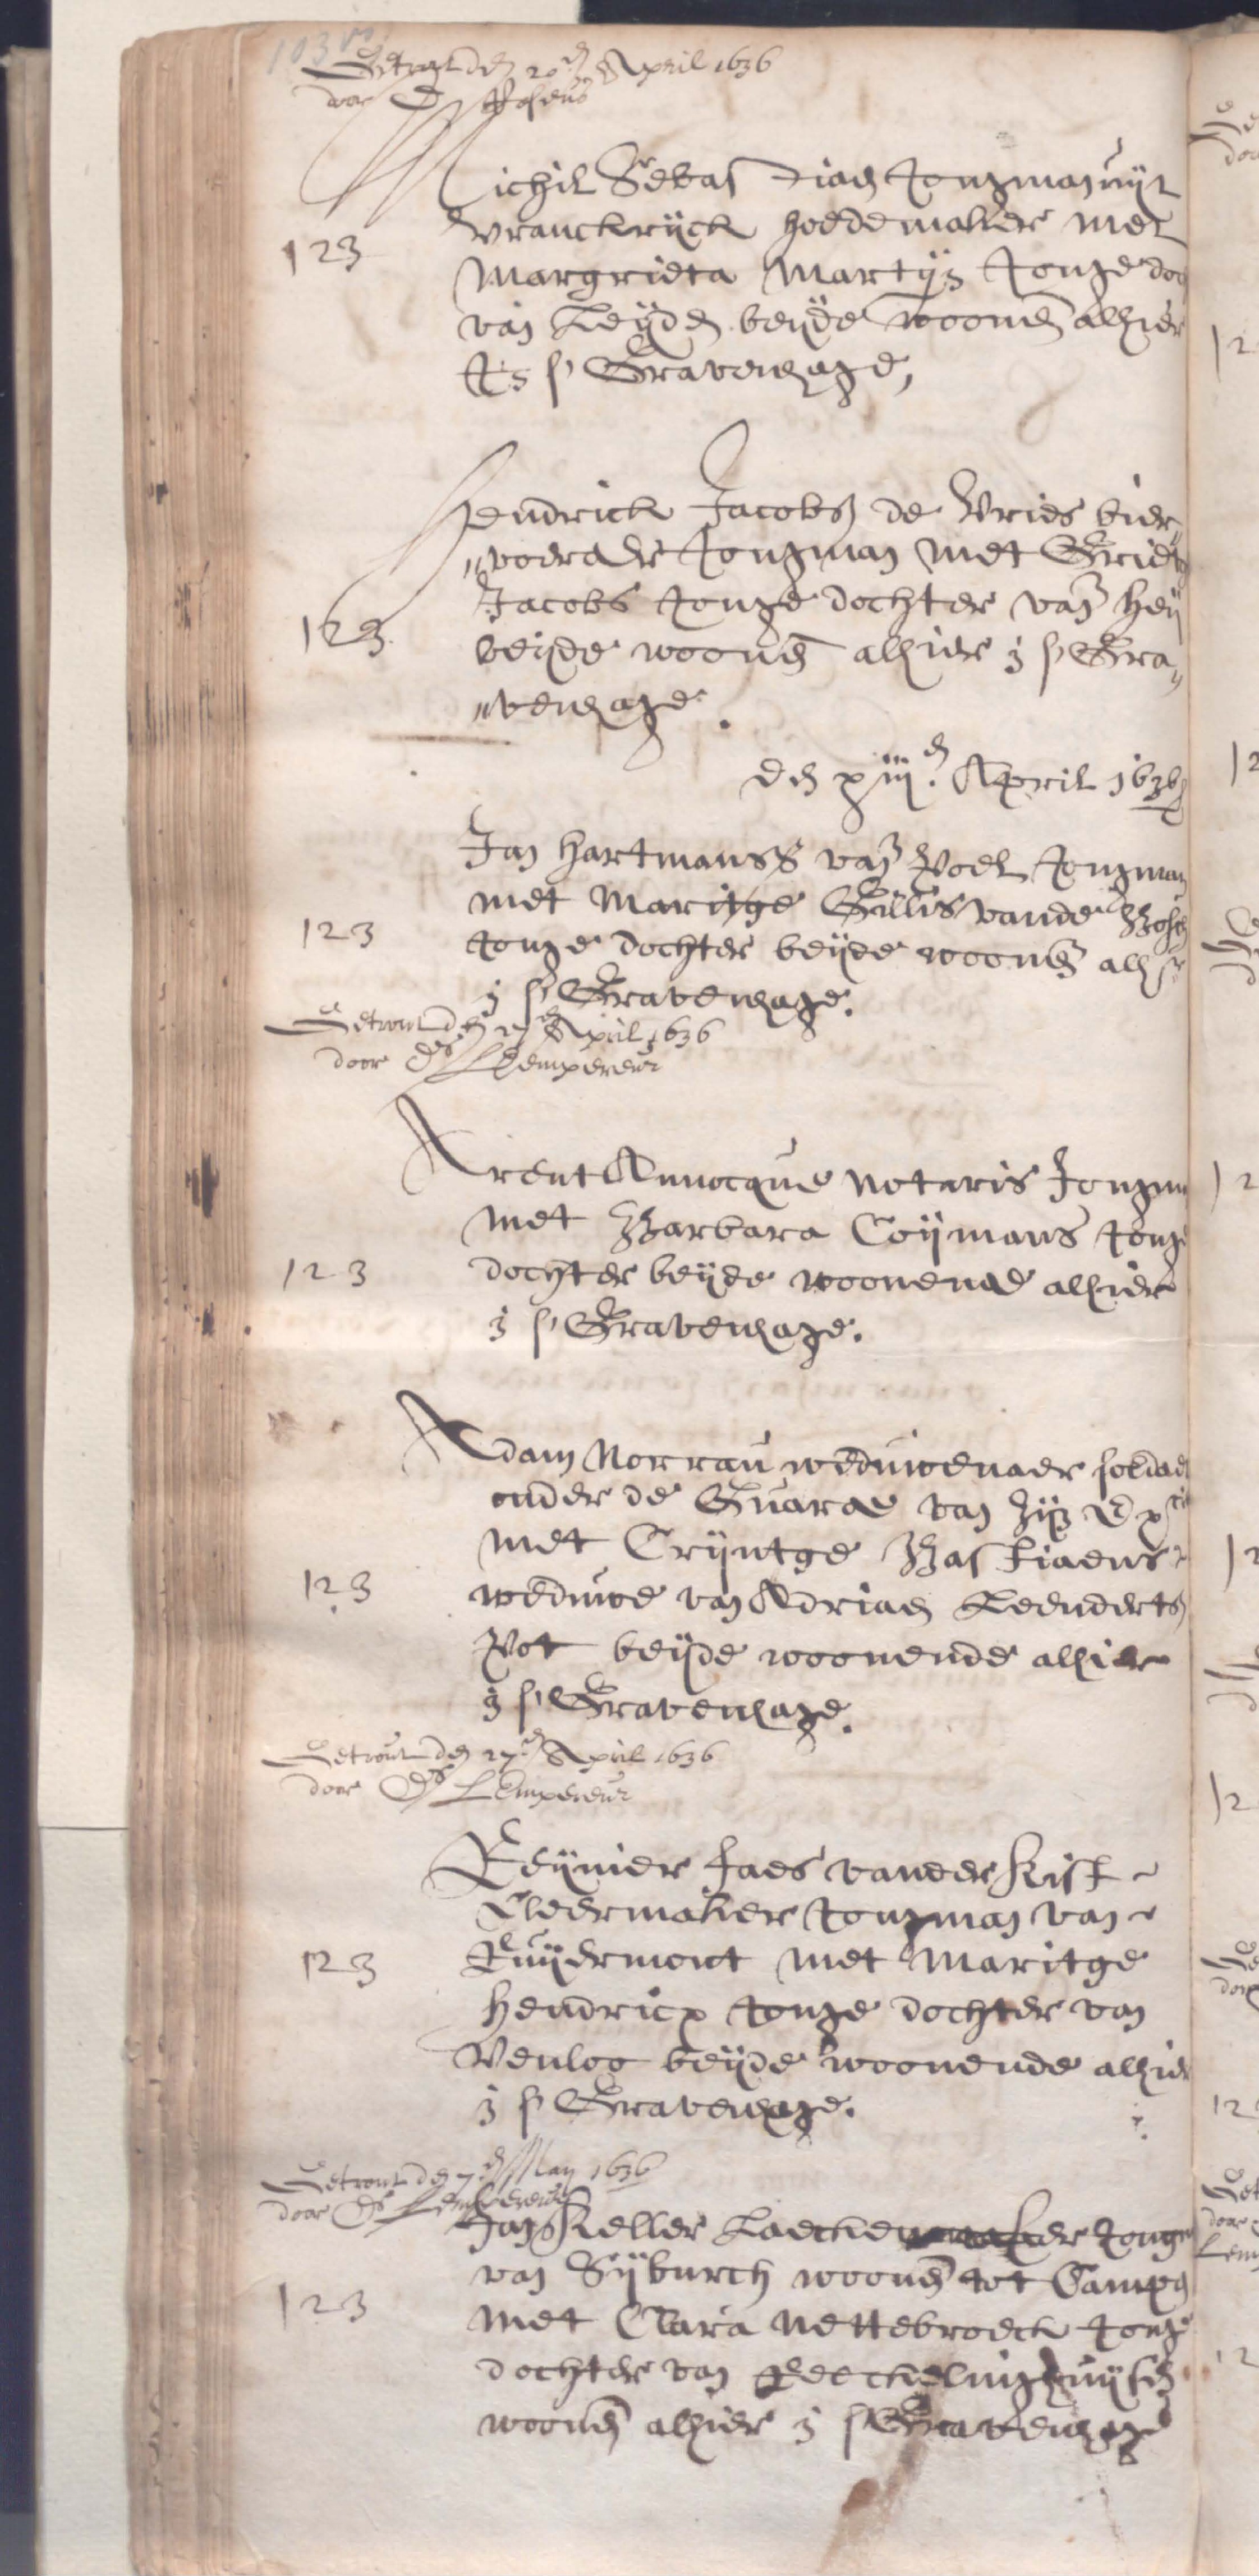 103v
Getrout den 20en April 1636
door D
Michil Sebastiaen Jongman uijt
Vranckrijck hoedemaker met
123
Margrieta Martijns Jonge doc
van Leijden beijde woonen alhier
In s' Gravenhage,
Hendrick Jacobs de Vries bier
voerder Jongman met Griet
Jacobs Jonge dochter van
123
beijde woonen alhier in s' Gra
venhage.
Den xiijen April 1636
Jan Hartmanss van Poel Jongman
met Maritge Gillis vande Bosch
123
Jonge dochter beijde woonen alhr
in s' Gravenhage.
Getrout den April 1636
door Ds Lempereur
Arent Annocque notaris Jongm
met Barbara Coijmans Jong
123
dochter beijde woonende alhier
in s' Gravenhage.
Adam Norrau weduwenaer soldaet
onder de Guarde van Zijn Excie
met Crijntge Bastiaens
123
weduwe van Adriaen Leenderts
Pot beijde woonende alhier
in s' Gravenhage.
Getrout den 27en April 1636
door Ds Lempereur
Reijnier Faes vander Kist
Cleermaker Jongman van
123
Ruijermont met Maritge
Hendricx Jonge dochter van
Venloo beijde woonende alhier
in s' Gravenhage.
Getrout den 7en Maij 1636
door Ds Lempereur
Jan Keller Jong
van Sijburch woonen tot Campen
123
met Clara Nettebroeck Jonge
dochter van
woonen alhier in s' Gravenhage